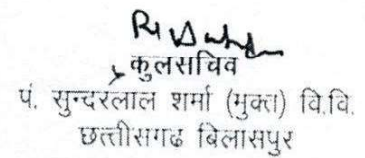 कुलसचिव
पं. सुन्दरलाल शर्मा (मुक्त) वि.वि.
छत्तीसगढ बिलासपुर